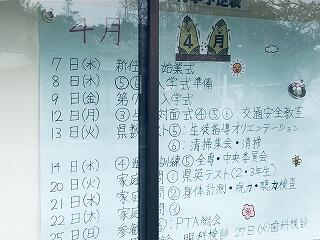 4月
4月
7日(水) 新任 始業式
8日(木) ⑤⑥ 入学式準備
9日(金) 第7 入学式
12日(月) ③ 生 対面式④⑤⑥:交通安全教室
13日(火) 県数 テスト⑤:生徒指導オリエンテーション
⑥:清掃集会・清掃
14日(水) ④ 訓練⑤全専・中央委員会
20日(火) 家庭 問①県英テスト(2・3年生)
21日(水) 家庭 問②身体計測・視力・聴力検査
22日(木) 家庭 問③
25日(日) 参 PTA総会
眼科検診 27日(火)歯科検診